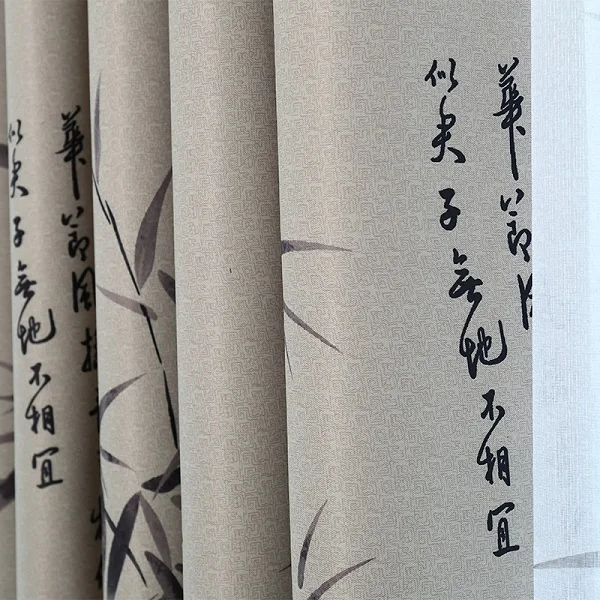 華節風
似君子無地不相宜
華節風
似君子無地不相宜